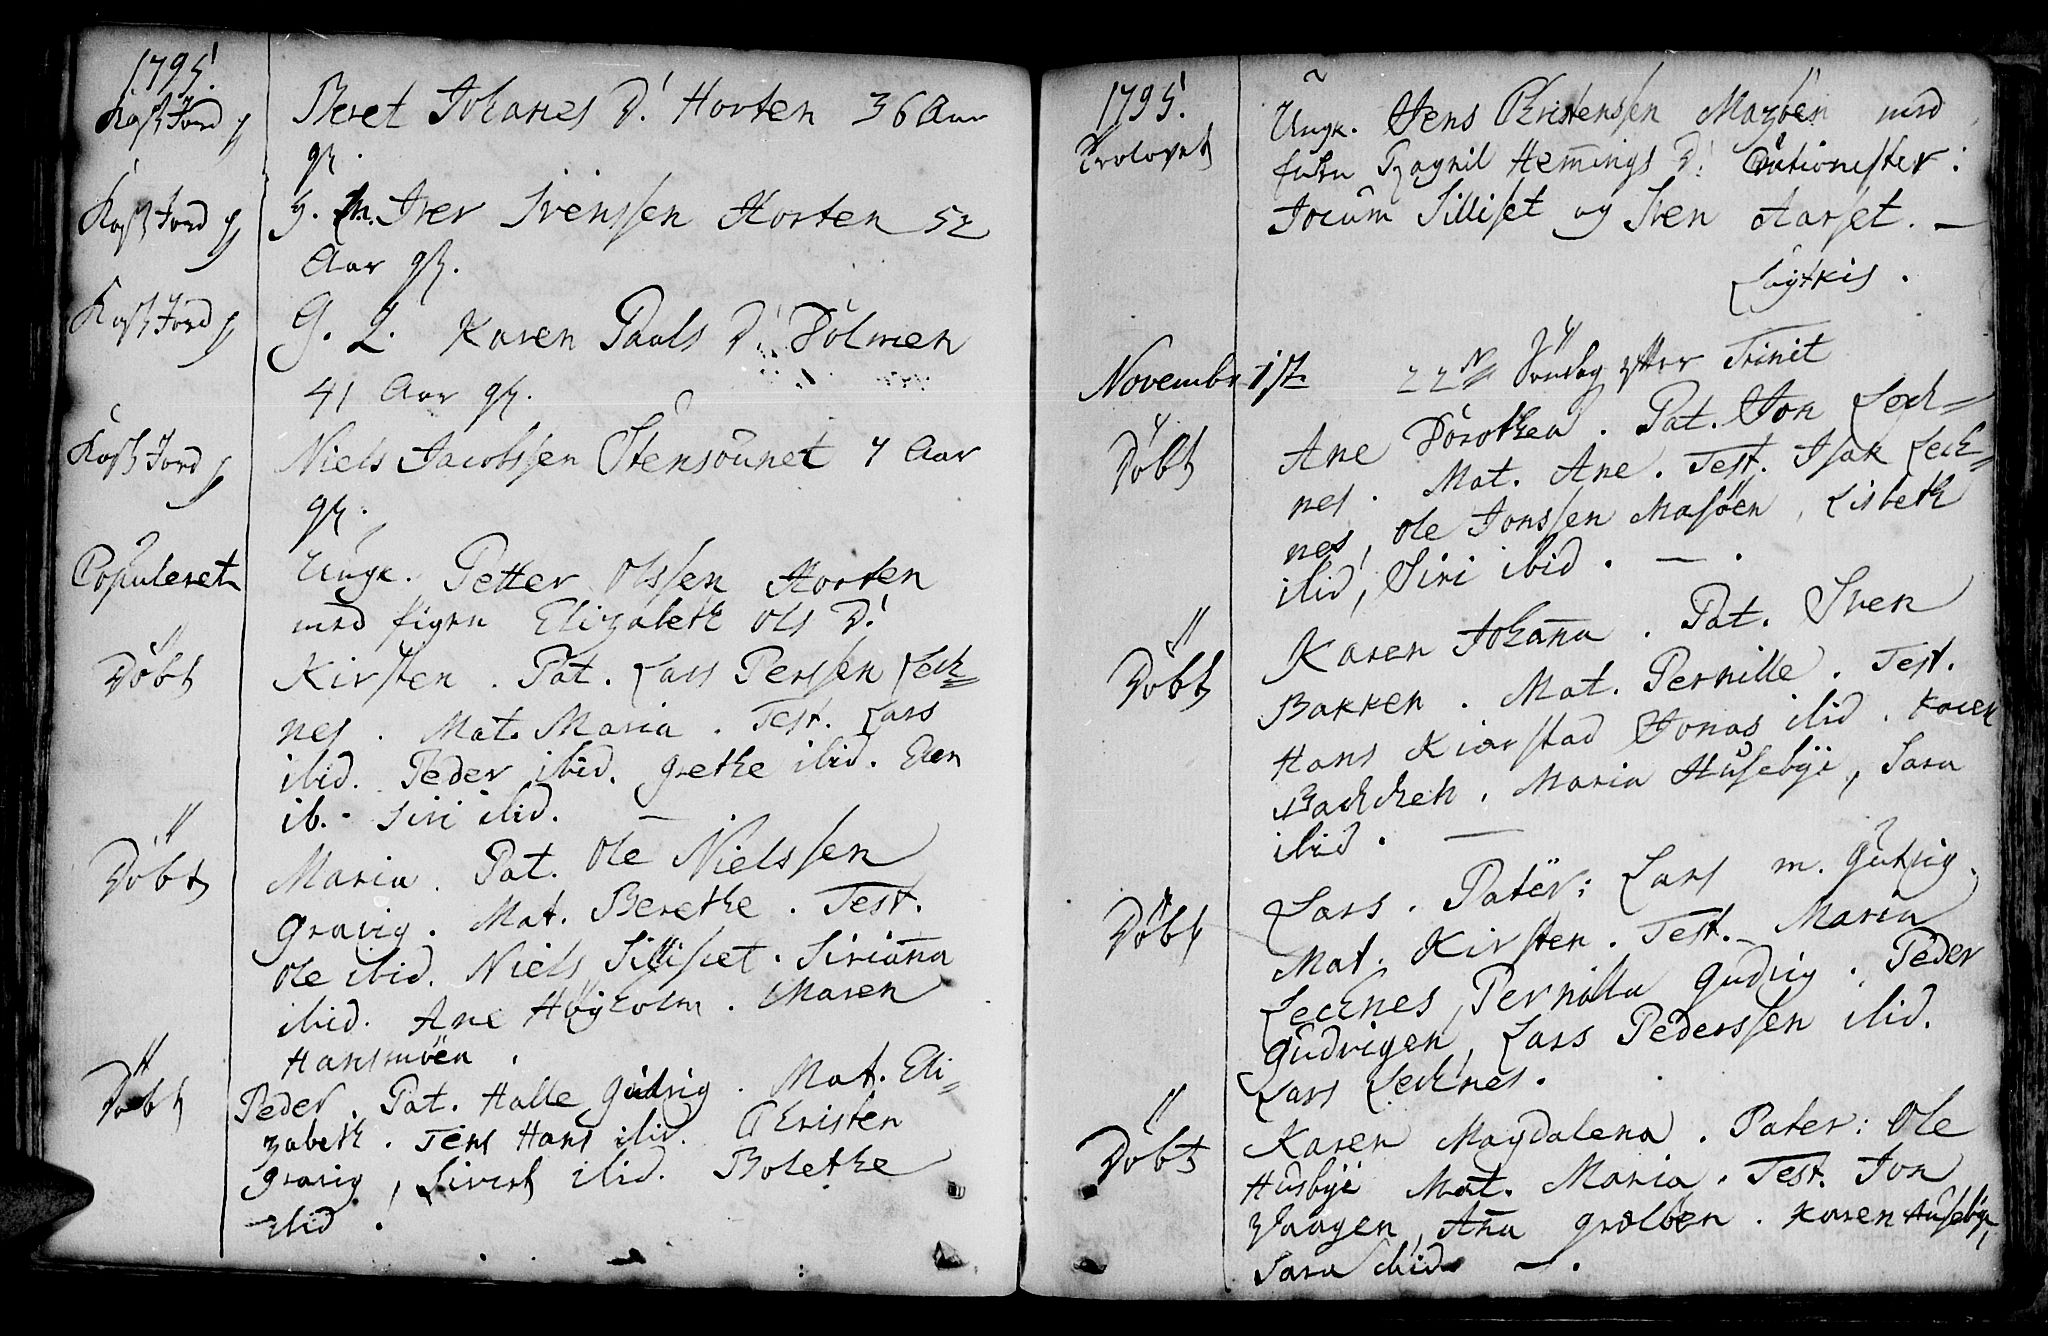 1795.
Kast Jord p
Beret Johanes D! Horten 36 Aar
gl.
Kast Jord p
G. M. Iver Svenssen Horten 52
Aar gl.
Kast Jord p
G. L. Karen Pauls D! Dolmen
41 Aar gl.
Kast Jord p
Niels Jacobssen Stensöunet 4 Aar
gl.
Copuleret
Ungk. Petter Olssen Horten
med pigen Elizabeth Ols D!
Döbt
Kirsten. Pat. Lars Perssen Leck=
nes. Mat. Maria. Test. Lars
ibid. Peder ibid. Grethe ibid. Elen
ib. - Siri ibid. —
Döbt
Maria. Pat. Ole Nielssen
Gravig. Mat. Berethe. Test.
Ole ibid. Niels Silliset. Siriana
ibid. Ane Høyholm. Maren
Hansmöen.
Döbt
Peder. Pat. Halle Gudvig. Mat. Eli=
zabeth. Tens Hans ibid. Christen
Gravig, Sivert ibid. Bolethe
ibid.
1795.
Trolovet
Ungk. Jens Christenssen Mazöen med
Ragnil Hemings D! Cautionister:
Jocum Silliset og Sven Aarset. —
November 1ste 22de Söndag efter Trinit
Döbt
Ane Dorothea. Pat. Jon Leck=
nes. Mat. Ane. Test. Isak Leck=
nes, Ole Jonssen Masöen, Lisbeth
ibid, Siri ibid. — .
Döbt
Karen Johana. Pat. Sven
Bakken. Mat. Pernille. Test.
Hans Kiørstad Jonas ibid. Karen
Backcken. Maria Husebye, Sara
ibid. —
Döbt
Lars. Pater: Lars m. Gudvig.
Mat. Kirsten. Test. Maria
Lecknes, Pernilla Gudvig. Peder
Gudvigen, Lars Pederssen ibid.
Lars Lecknes.
Döbt
Karen Magdalena. Pater: Ole
Husbye Mat. Maria. Test. Jon
Vaagen, Ana Grølöen. Karen Husebye,
Sara ibid — .